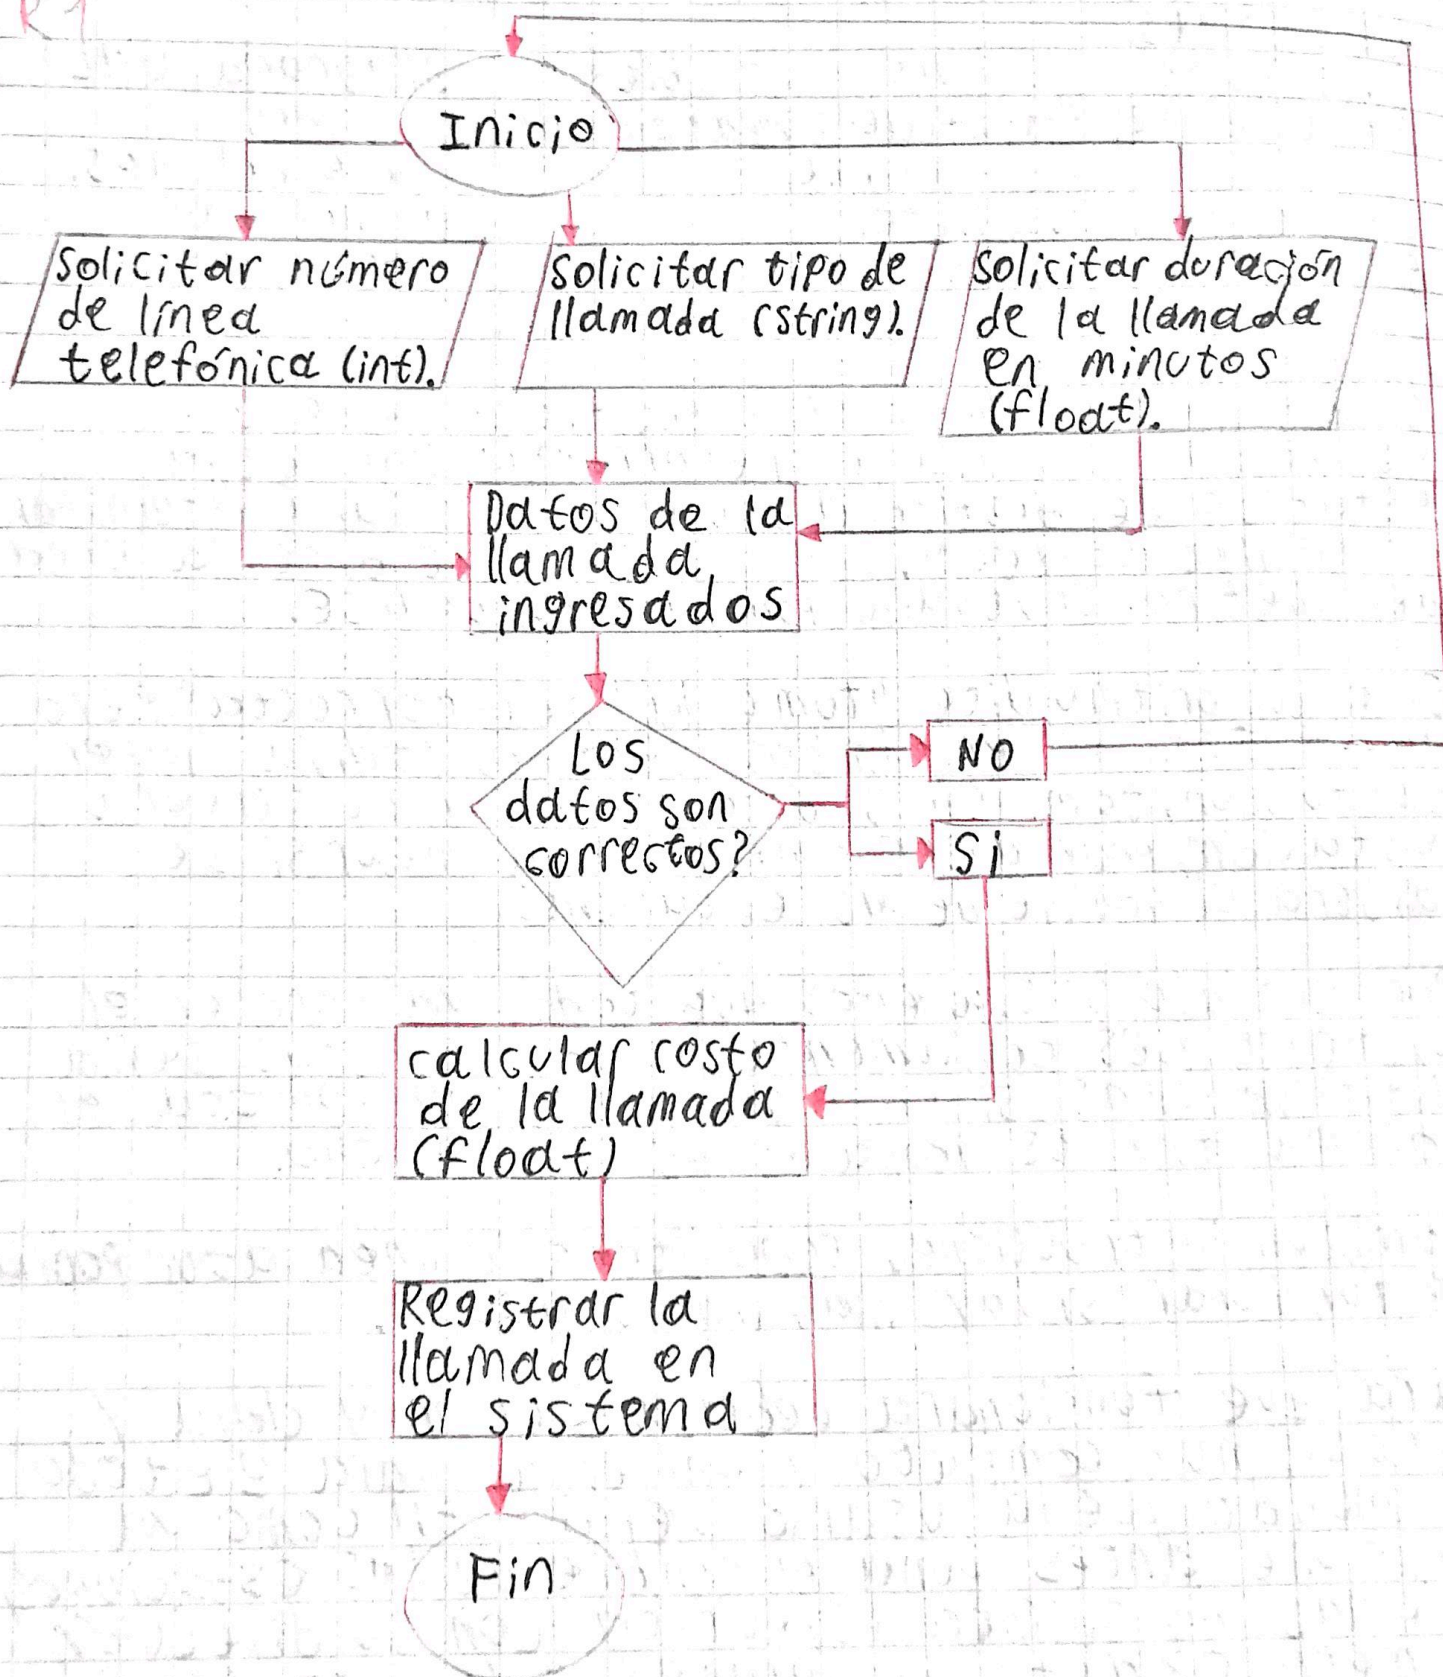 R1
Inicio
Solicitar número
de línea
telefónica (int).
Solicitar tipo de
llamada (string).
Solicitar duración
de la llamada
en minutos
(float).
Datos de la
llamada
ingresados
Los
datos son
correctos?
NO
Si
calcular costo
de la llamada
(float)
Registrar la
llamada en
el sistema
Fin